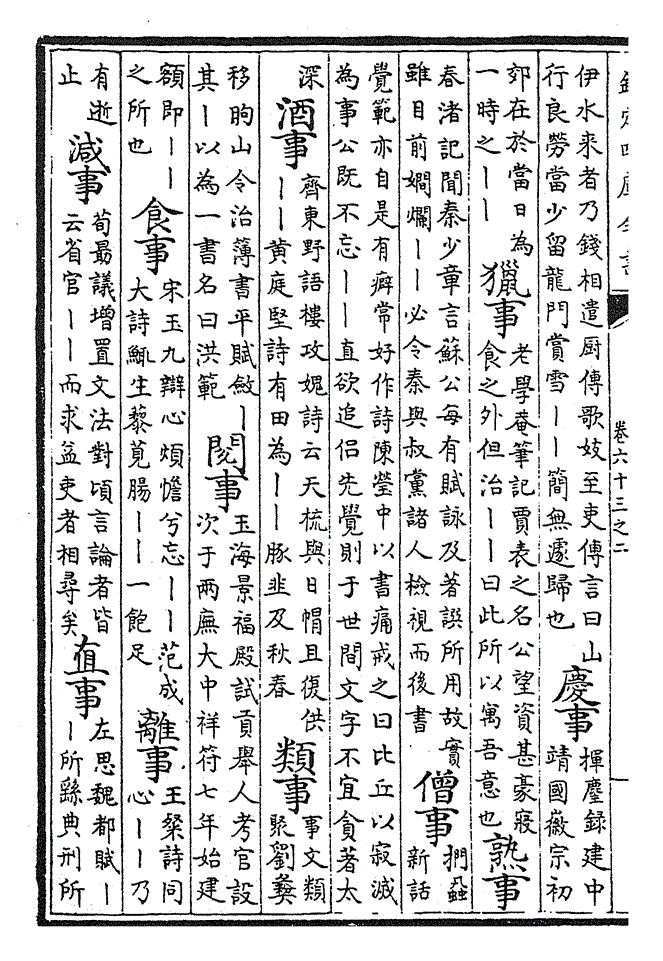 欽定四庫全書 卷六十三之二
伊水來者乃錢相遣厨傳歌妓至吏傳言曰山行良勞當少留龍門賞雪丨丨簡無遽歸也 慶事 揮麈錄建中靖國徽宗初
郊在於當日為一時之丨丨 獵事 老學庵筆記賈表之名公望資甚豪寢食之外但治丨丨曰此所以寓吾意也 熟事
春渚記聞秦少章言蘇公每有賦詠及著譔所用故實雖目前嫻爛丨丨必令秦與叔黨諸人檢視而後書 僧事 捫蝨新話
覺範亦自是有癖常好作詩陳瑩中以書痛戒之曰比丘以寂滅為事公既不忘丨丨直欲追侣先覺則于世間文字不宜貪著太
深 酒事 齊東野語樓攻媿詩云天梳與日帽且復供丨丨黄庭堅詩有田為丨丨豚韭及秋春 類事 事文類聚劉彝
移朐山令治薄書平賦斂丨其丨以為一書名曰洪範 閱事 玉海景福殿試貢舉人考官設次于兩廡大中祥符七年始建
額即丨丨之所也 食事 宋玉九辯心煩憺兮忘丨丨范成大詩鯫生藜莧腸丨丨一飽足 離事 王粲詩同心丨丨乃
有逝止 減事 荀最議增置文法對頃言論者皆云省官丨丨而求益吏者相尋矣 值事 左思魏都賦丨丨所繇典刑所